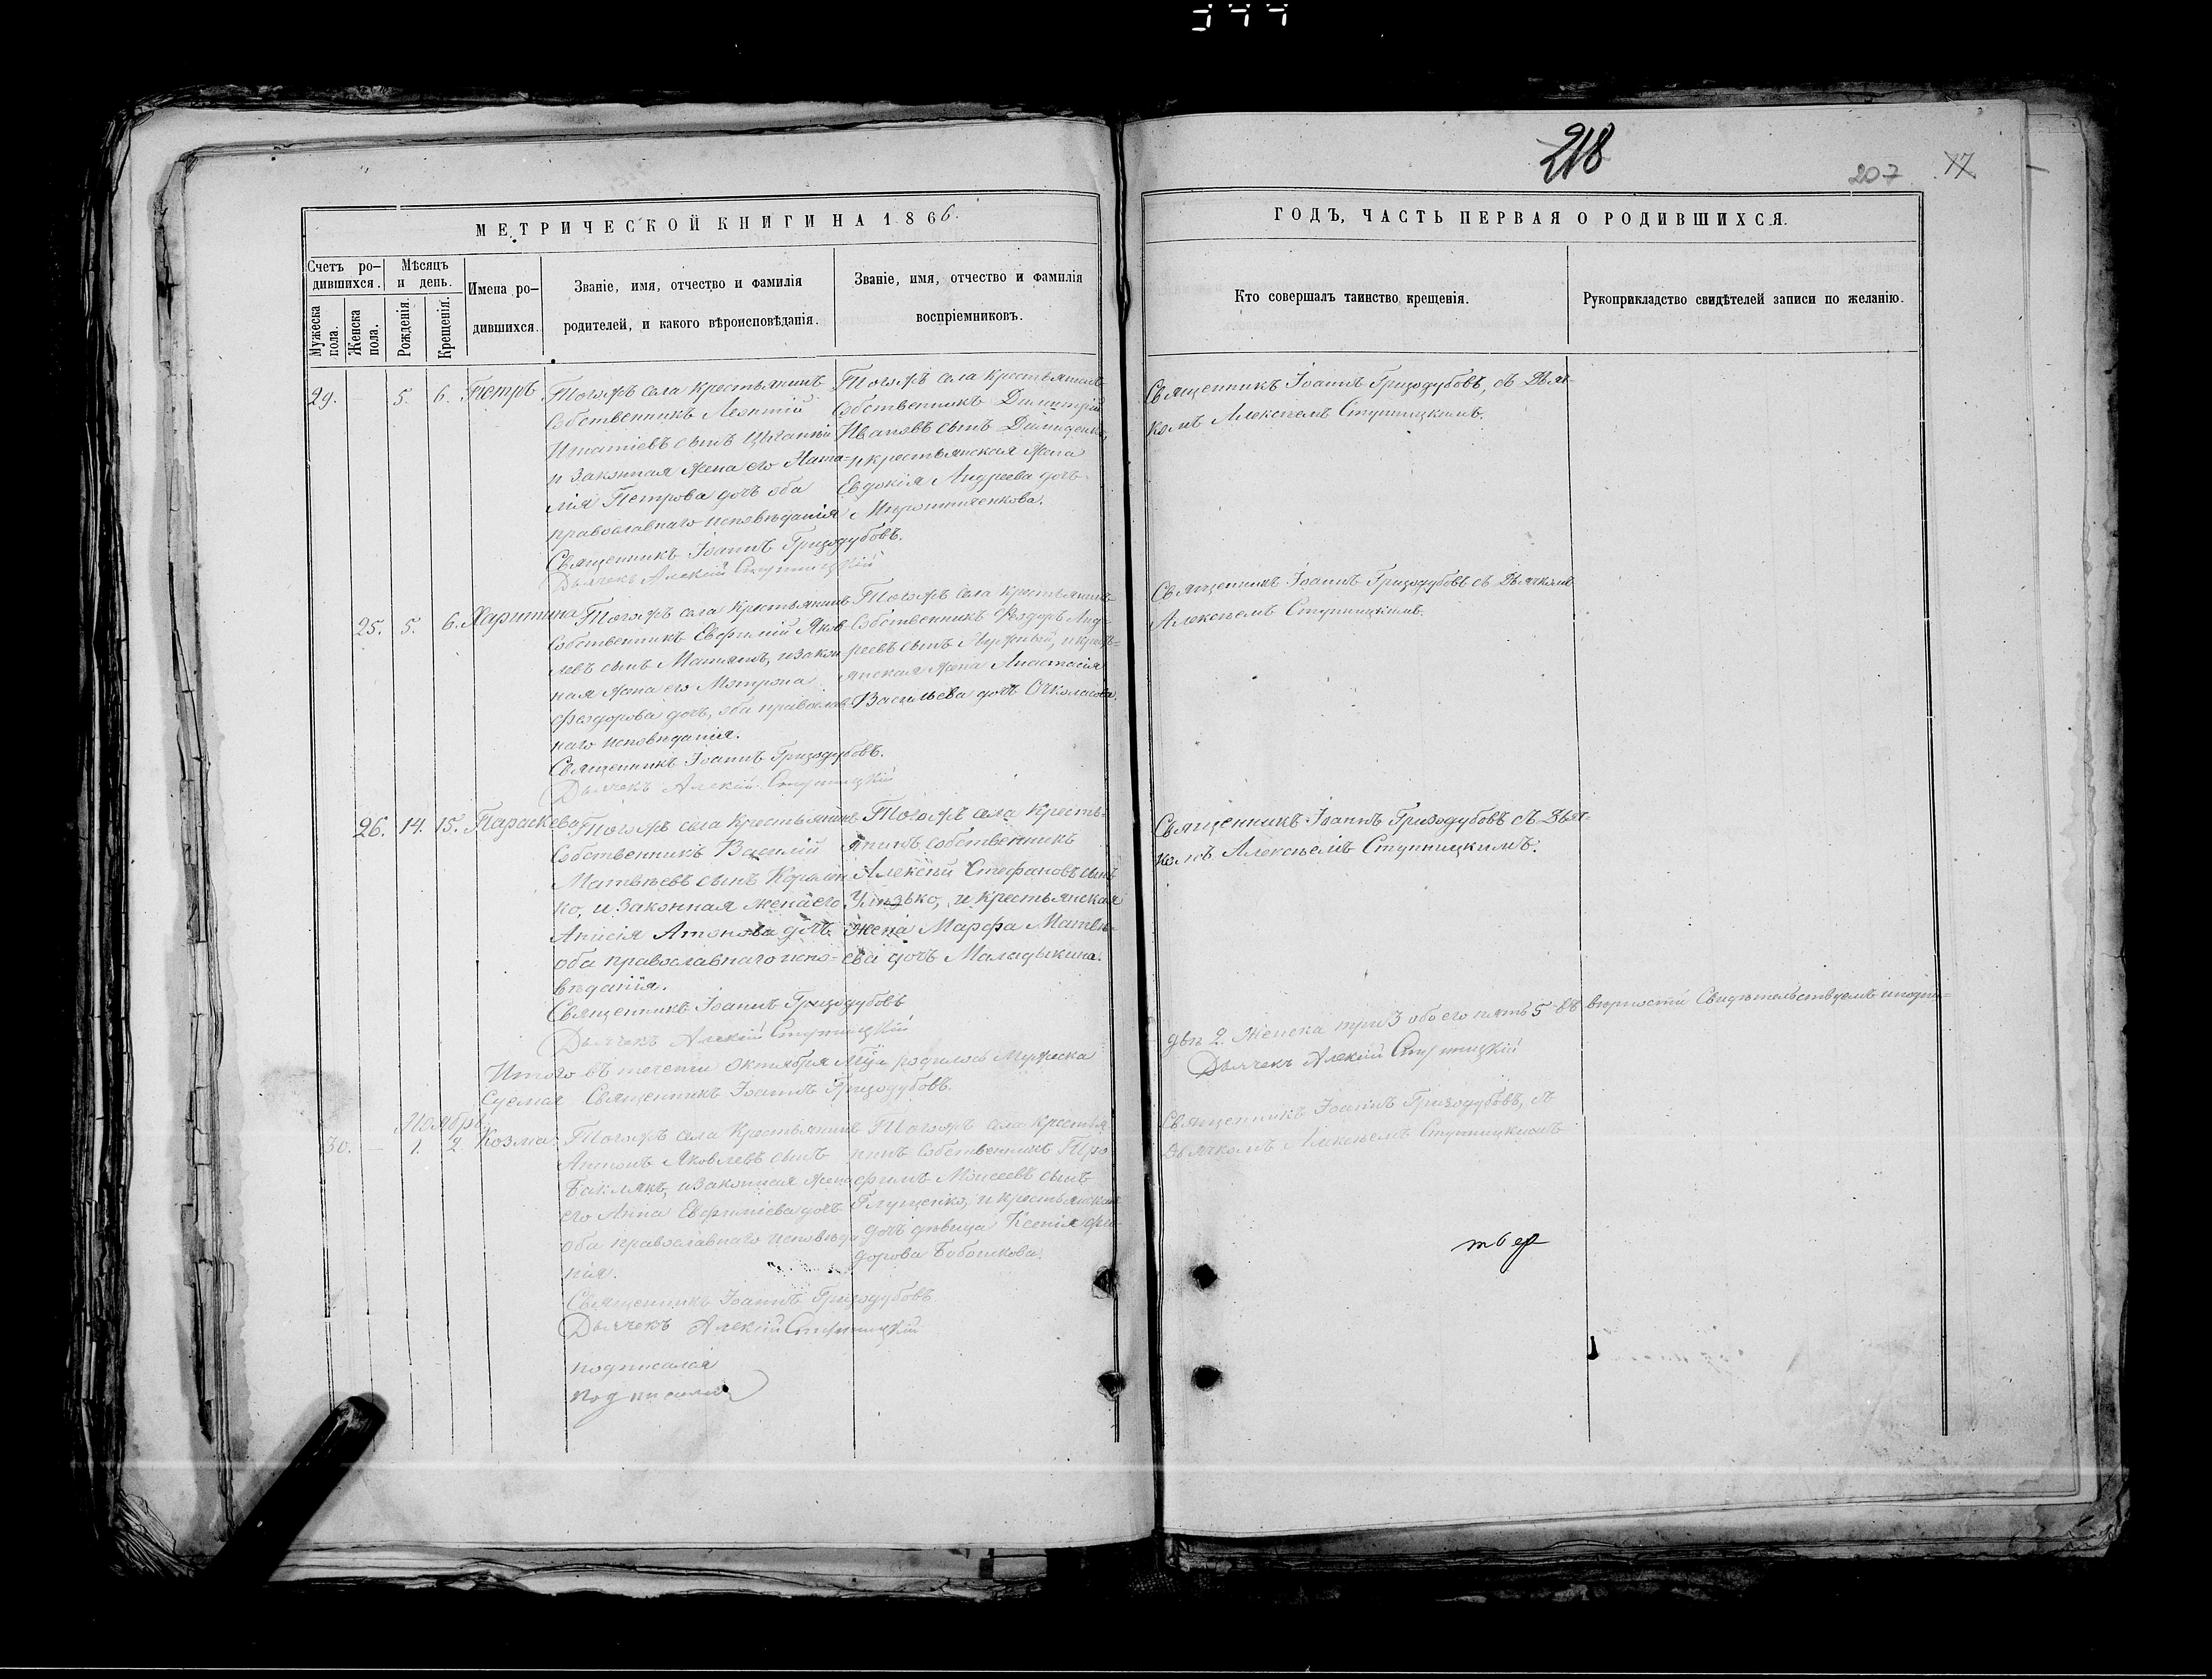 218
207
17
МЕТРИЧЕСКОЙ КНИГИ НА 1866.
ГОДЪ, ЧАСТЬ ПЕРВАЯ О РОДИВШИХСЯ.
Счетъ ро-
дившихся.
Мѣсяцъ
и день.
Мужеска
пола.
Женска
пола.
Рожденія.
Крещенія.
Имена ро-
дившихся.
Званіе, имя, отчество и фамилія
родителей, и какого вѣроисповѣданія.
Званіе, имя, отчество и фамилія
воспріемниковъ.
Кто совершалъ таинство крещенія.
Рукоприкладство свидѣтелей записи по желанію.
29. — 5. 6. Петръ
Тогожъ села крестьянинъ
Собственникъ Леонтій
Игнатіевъ сынъ
и законная жена его Ната-
лія Петрова дочъ оба
православнаго исповѣданія
Священникъ Іоаннъ Гризодубовъ.
Дьячекъ Алексій Ступницкій
Тогожъ села крестьянинъ
Собственникъ Димитрій
Ивановъ сынъ
и крестьянская жена
Евдокія Андреева дочь
Священникъ Іоаннъ Гризодубовъ, съ Дьяч-
комъ Алексѣемъ Ступницкимъ.
25. 5. 6. Харитина
Тогожъ села Крестьянинъ
Собственникъ Евфимій Яков
левъ сынъ и закон-
ная жена его Мотрона
Феодорова дочь, оба православ-
наго исповѣданія.
Священникъ Іоаннъ Гризодубовъ.
Дьячекъ Алексій Ступницкій
Тогожъ села крестьянинъ
Собственникъ Феодоръ Анд-
реевъ сынъ и кресть-
янская жена Анастасія
Васильева дочь
Священникъ Іоаннъ Гризодубовъ съ Дьячкомъ
Алексѣемъ Ступницкимъ.
26. 14. 15. Параскева
Тогожъ села Крестьянинъ
Собственникъ Василій
Матвѣевъ сынъ
ко, и законная жена его
Анисія Атонова дочь
оба православнаго испо-
вѣданія.
Священникъ Іоаннъ Гризодубовъ
Дьячекъ Алексій Ступницкій
Тогожъ села Кресть-
янинъ собственникъ
Алексѣй Стефановъ сынъ
и крестьянская
жена Марфа Матвѣ-
ева дочь Маладыкина.
Священникъ Іоаннъ Гризодубовъ съ Дьяч-
комъ Алексѣемъ Ступницкимъ.
Итого въ теченіи Октября родилось Мужеска
Священникъ Іоаннъ Гризодубовъ.
два 2. Женска три 3 обоего пять 5 въ вѣрности Свидѣтельствуемъ
Дьячекъ Алексій Ступницкій
Ноябрь
30. — 1. 2. Козма
Тогожъ села Крестьянинъ
Антонъ Яковлевъ сынъ
Бакланъ, и законная жена
его Анна Евфиміева дочь
оба православнаго исповѣда
нія.
Священникъ Іоаннъ Гризодубовъ
Дьячекъ Алексій Ступницкій
Тогожъ села Крестья
нинъ Собственникъ Тро
фимъ Моисеевъ сынъ
Глущенко, и крестьянская
дочь дѣвица Ксенія Фео-
дорова
Священникъ Іоаннъ Гризодубовъ, съ
Дьячкомъ Алексѣемъ Ступницкимъ
подписался